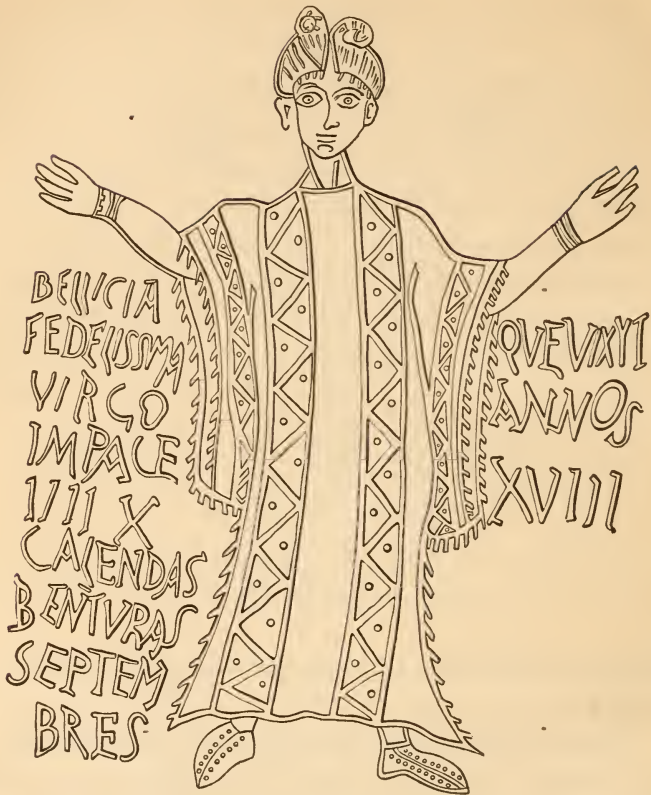 BELLICIA
FEDELISSIMA
VIRGO
IMPACE
IIII X
CALENDAS
BENTURAS
SEPTEM
BRES
QVE VIXYI
ANNOS
XVIII